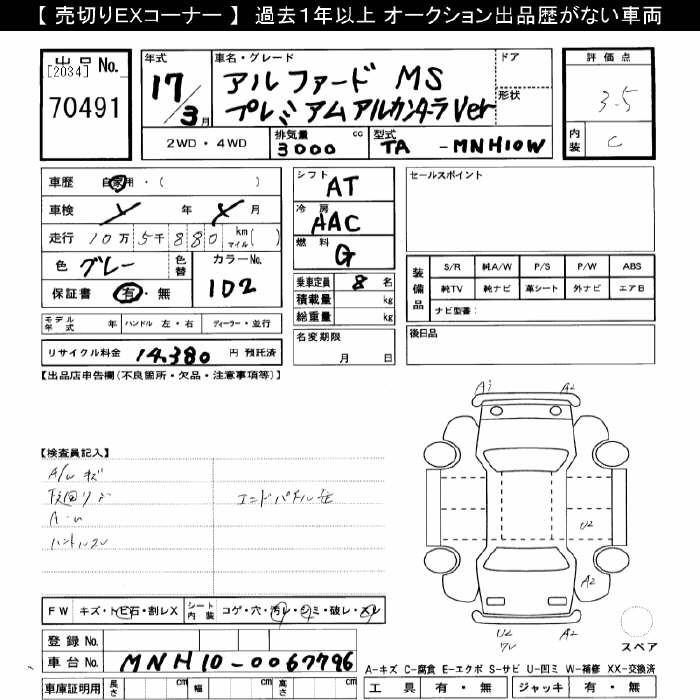 【 売切りEXコーナー 】 過去1年以上 オークション出品歴がない車両
出品 No.
[2034]
70491
年式
17/3月
車名・グレード
アルファード MS
プレミアムアルカンターラVer
ドア
形状
評価点
3.5
内装
C
2WD・4WD
排気量
3000 cc
型式
TA - MNH10W
車歴 自家用・( )
車検 年 月
走行 10万 5千 880 km マイル( )
色 グレー
色替
カラーNo.
102
保証書 有・無
シフト
AT
冷房
AAC
燃料
G
乗車定員 8 名
積載量 kg
総重量 kg
セールスポイント
装備品
S/R 純A/W P/S P/W ABS
純TV 純ナビ 革シート 外ナビ エアB
ナビ型番:
モデル年式 年 ハンドル 左・右 ディーラー・並行
リサイクル料金 14,380 円 預託済
名変期限
月 日
後日品
【出品店申告欄(不良箇所・欠品・注意事項等)】
【検査員記入】
A/W キズ
ハンドルスレ
エンドパネル
A1
A2
U2
A2
U2
W
A2
FW キズ・トビ石・割レX
シート内装 コゲ・穴・汚レ・シミ・破レ・スレ
登録 No.
車台 No. MNH10-0067796
車庫証明用 長さ cm 幅 cm 高さ cm
スペア
A-キズ C-腐食 E-エクボ S-サビ U-凹ミ W-補修 XX-交換済
工具 有・無 ジャッキ 有・無